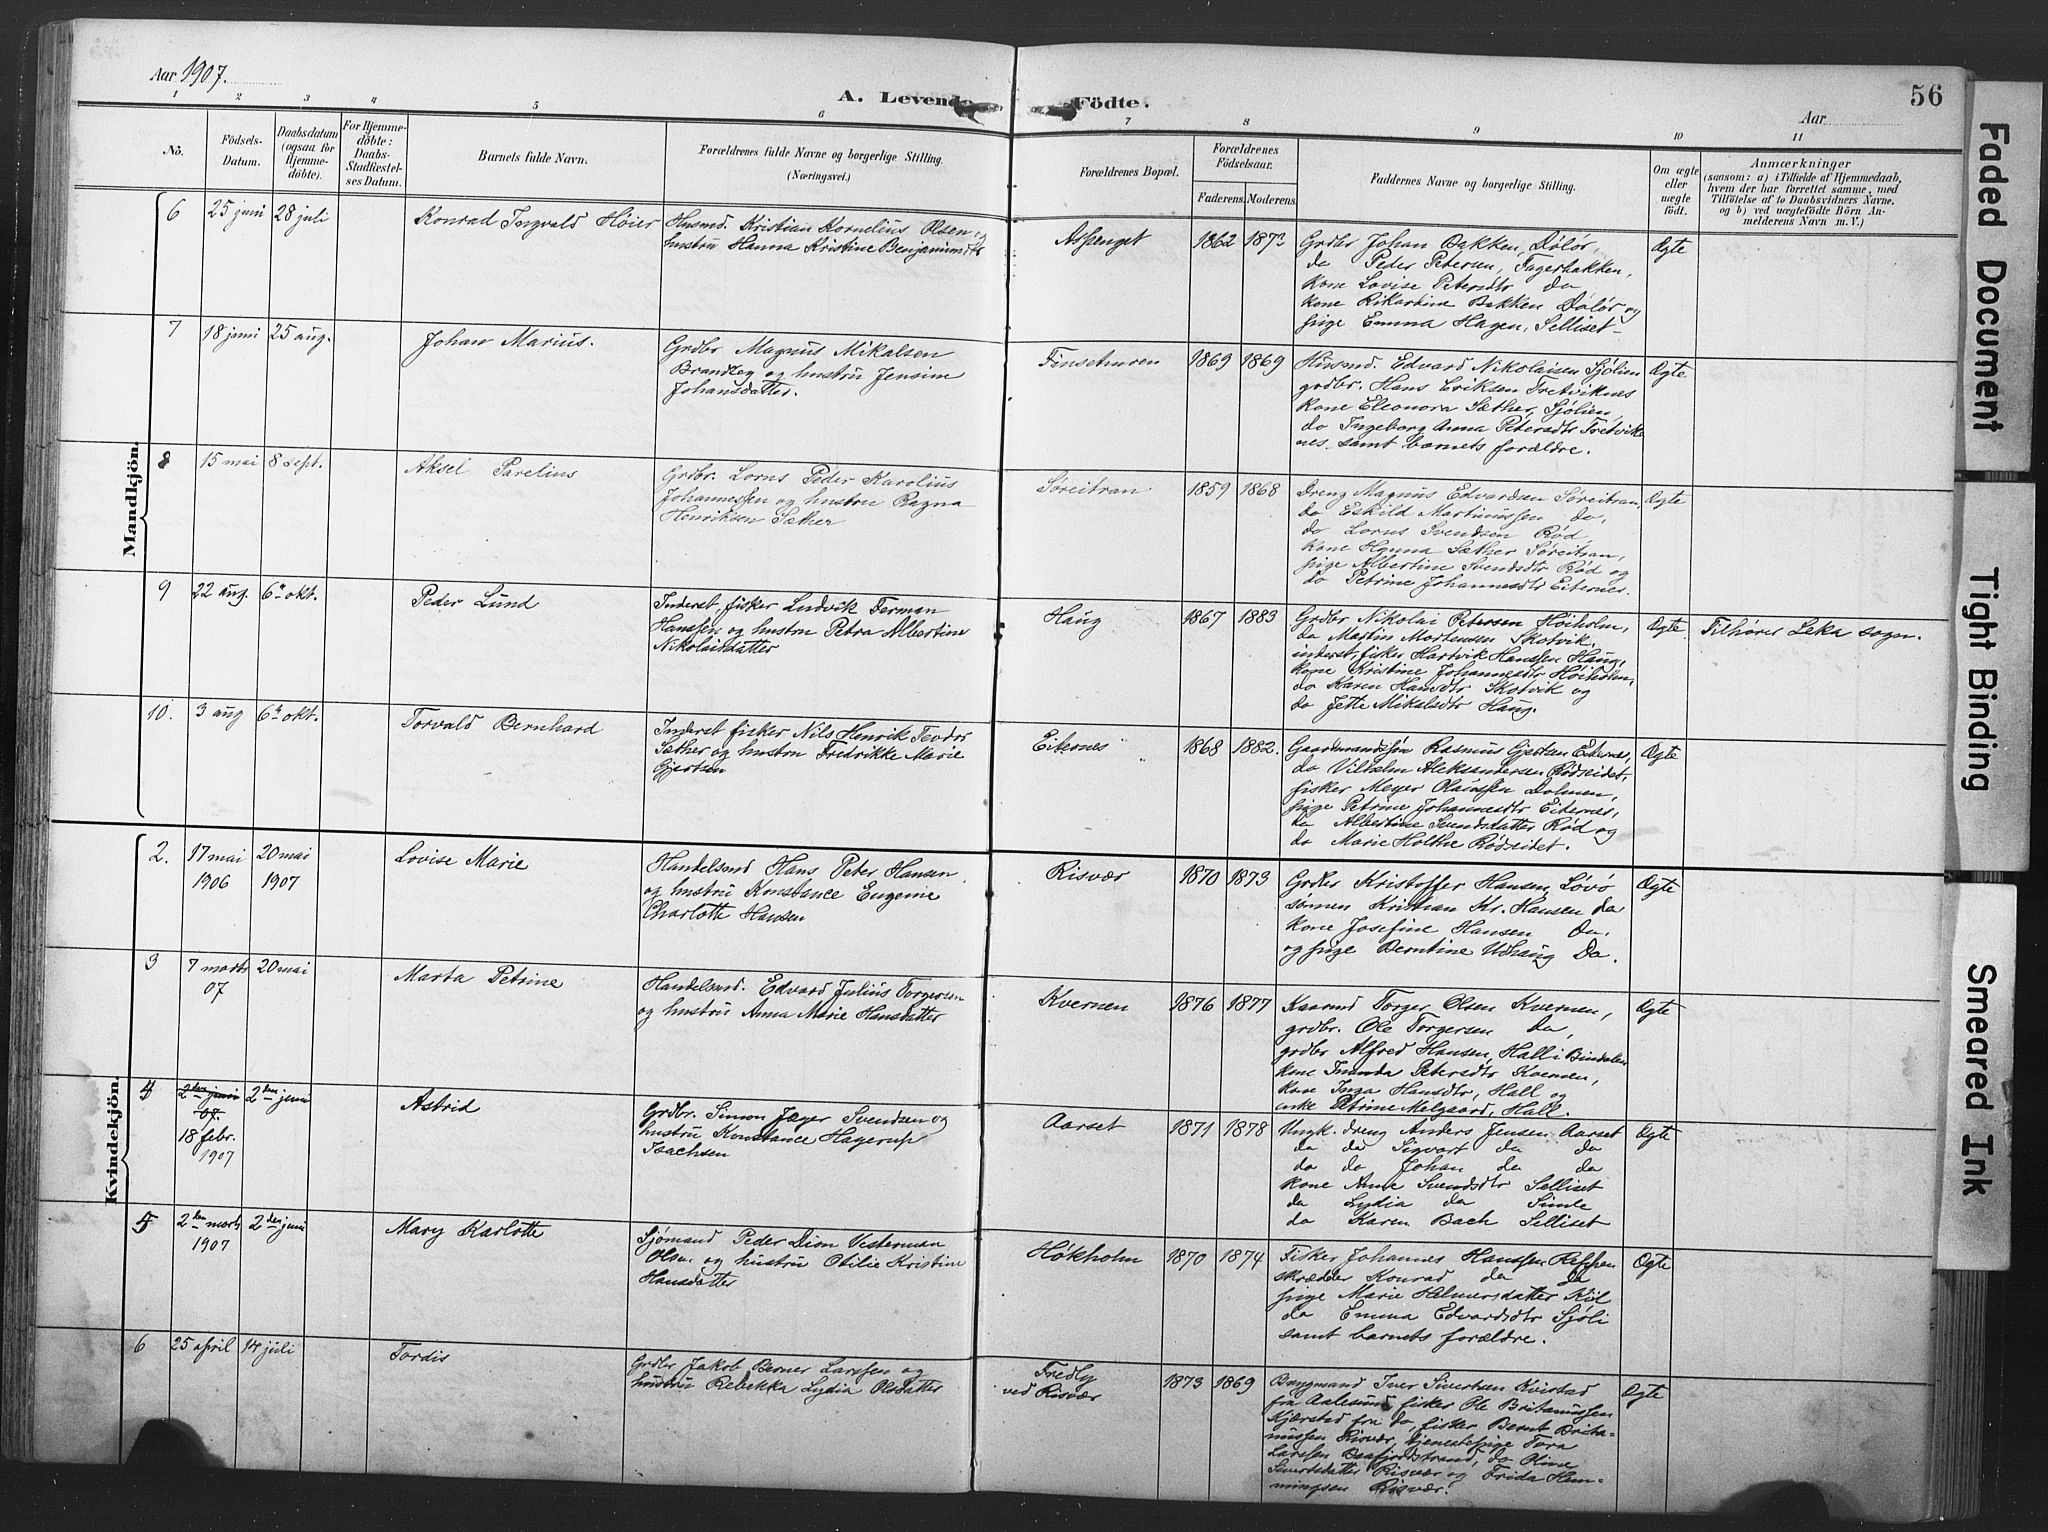 Aar 1907.
A. Levende Födte.
56
Aar
1 2 3 4 5 6 7 8 9 10 11
No.
Födsels-
Datum.
Daabsdatum
(ogsaa for
Hjemme-
döbte).
For Hjemme-
döbte:
Daabs-
Stadfæstel-
ses Datum.
Barnets fulde Navn.
Forældrenes fulde Navne og borgerlige Stilling.
(Næringsvei.)
Forældrenes Bopæl.
Forældrenes
Födselsaar.
Faderens. Moderens.
Faddernes Navne og borgerlige Stilling.
Om ægte
eller
uægte
födt.
Anmærkninger
(saasom: a) i Tilfælde af Hjemmedaab,
hvem der har forrettet samme, med
Tilföielse af to Daabsvidners Navne.
og b) ved uægtefödte Börn An-
melderens Navn m. V.)
Mandkjön.
6 25 juni 28 juli Konrad Ingvald Høier
Husmd. Kristian Kornelius Olsen og
hustru Hanna Kristine Benjaminsdtr
Aspenget 1862 1873
Grdbr Johan Bakken, Dølør,
do Peder Petersen, Fagerbakken,
kone Lovise Petersdtr do
kone Rikardine Bakken Dølør og
pige Emma Hagen, Selliset
Ægte
7 18 juni 25 aug. Johan Marius.
Grdbr Magnus Mikalsen
Brandleg og hustru Jensine
Johansdatter.
Finsethuren 1869 1869
Husmd. Edvard Nikolaisen Sjølien
grdbr. Hans Eriksen Tretviknes
kone Eleonora Sæther, Sjølien,
do Ingeborg Anna Petersdtr Tretvik
nes samt barnets forældre.
Ægte
8 15 mai 8 sept. Aksel Parelius
Grdbr. Lorns Peder Karolius
Johannessen og hustru Ragna
Henriksen Sæther
Søreitran 1859 1868
Dreng Magnus Edvardsen Søreitran,
do Eskild Martinussen do,
do Lorns Svendsen Rød,
kone Hanna Sæther Søreitran,
pige Albertine Svendsdtr Rød og
do Petrine Johannesdtr Eiternes.
Ægte
9 22 aug. 6 okt. Peder Lund
Inderst, fisker Ludvik Ferman
Hanssen og hustru Petra Albertine
Nikolaisdatter
Haug 1867 1883
Grdbr Nikolai Petersen Høiholm,
do Martin Mortensen Skotvik,
inderst, fisker Hartvik Hanssen Haug,
kone Kristine Johannesdtr Høiholm,
do Karen Hansdtr Skotvik og
do Jette Mikalsdtr Haug.
Ægte. Tilhører Leka sogn.
10. 3 aug 6 okt. Torvald Bernhard
Inderst fisker Nils Henrik Teodor
Sæther og hustru Fredrikke Marie
Gjertsen
Eiternes 1868 1882.
Gaardmandssøn Rasmus Gjertsen Eiternes,
do Vilhelm Aleksandersen Rødseidet,
fisker Meyer Olaissen Dolmen,
pige Petrine Johannesdtr Eiternes,
do Albertine Svendsdatter Rød og
do Marie Holthe Rødseidet.
Ægte
Kvindekjön.
2. 17 mai 1906 20 mai 1907 Lovise Marie
Handelsmd Hans Peter Hansen
og hustru Konstance Eugenie
Charlotte Hansen
Risvær 1870 1873
Grdbr Kristoffer Hansen, Løvø
sønnen Kristian Kr. Hansen do
kone Josefine Hansen Do.
og pige Berntine Udhaug Do.
Ægte
3 7 marts 07 20 mai Marta Petrine
Handelsmd. Edvard Julius Torgersen
og hustru Anna Marie Hansdatter
Kvernen 1876 1877
Kaarmd Torger Olsen Kvernen,
grdbr. Ole Torgersen do,
grdbr Alfred Hansen, Hall i Bindalen
kone Imanda Petersdtr Kvernen,
kone Inga Hansdtr, Hall og
enke Petrine Melgaard, Hall.
Ægte
4 2den juni 07. 18 febr. 1907 2den juni Astrid
Grdbr. Simon Jæger Svendsen og
hustru Konstance Hagerup
Isachsen
Aarset 1871 1878
Ungk. dreng Anders Jensen Aarset
do do Sigvart do do
do do Johan do do
kone Anne Svendsdtr Selliset
do Lydia do Simle
do Karen Bach Selliset
Ægte
5 2den marts 1907 2den juni Mary Karlotte
Sjømand Peder Dion Vesterman
Olsen og hustru Otilie Kristine
Hansdatter
Høkholm 1870 1874
Fisker Johannes Hanssen Reppen
skrædder Konrad do do
pige Marie Helmersdatter Kiil
do Emma Edvardsdtr Sjøli
samt barnets forældre.
Ægte
6 25 april 14 juli Tordis
Grdbr Jakob Berner Larssen og
hustru Rebekka Lydia Olsdatter
Fredly
ved Risvær 1873 1869
Baugmand Iver Sivertsen Kvistad
fra Aalesund, fisker Ole Britanussen
Kjærstad fra do, fisker Bernt Brita-
nussen Risvær, tjenestepige Tora
Larssen Baafjordstrand, do Oline
Sivertsdatter Risvær og Frida Hem-
mingsen Risvær.
Ægte
Faded Document
Tight Binding
Smeared Ink